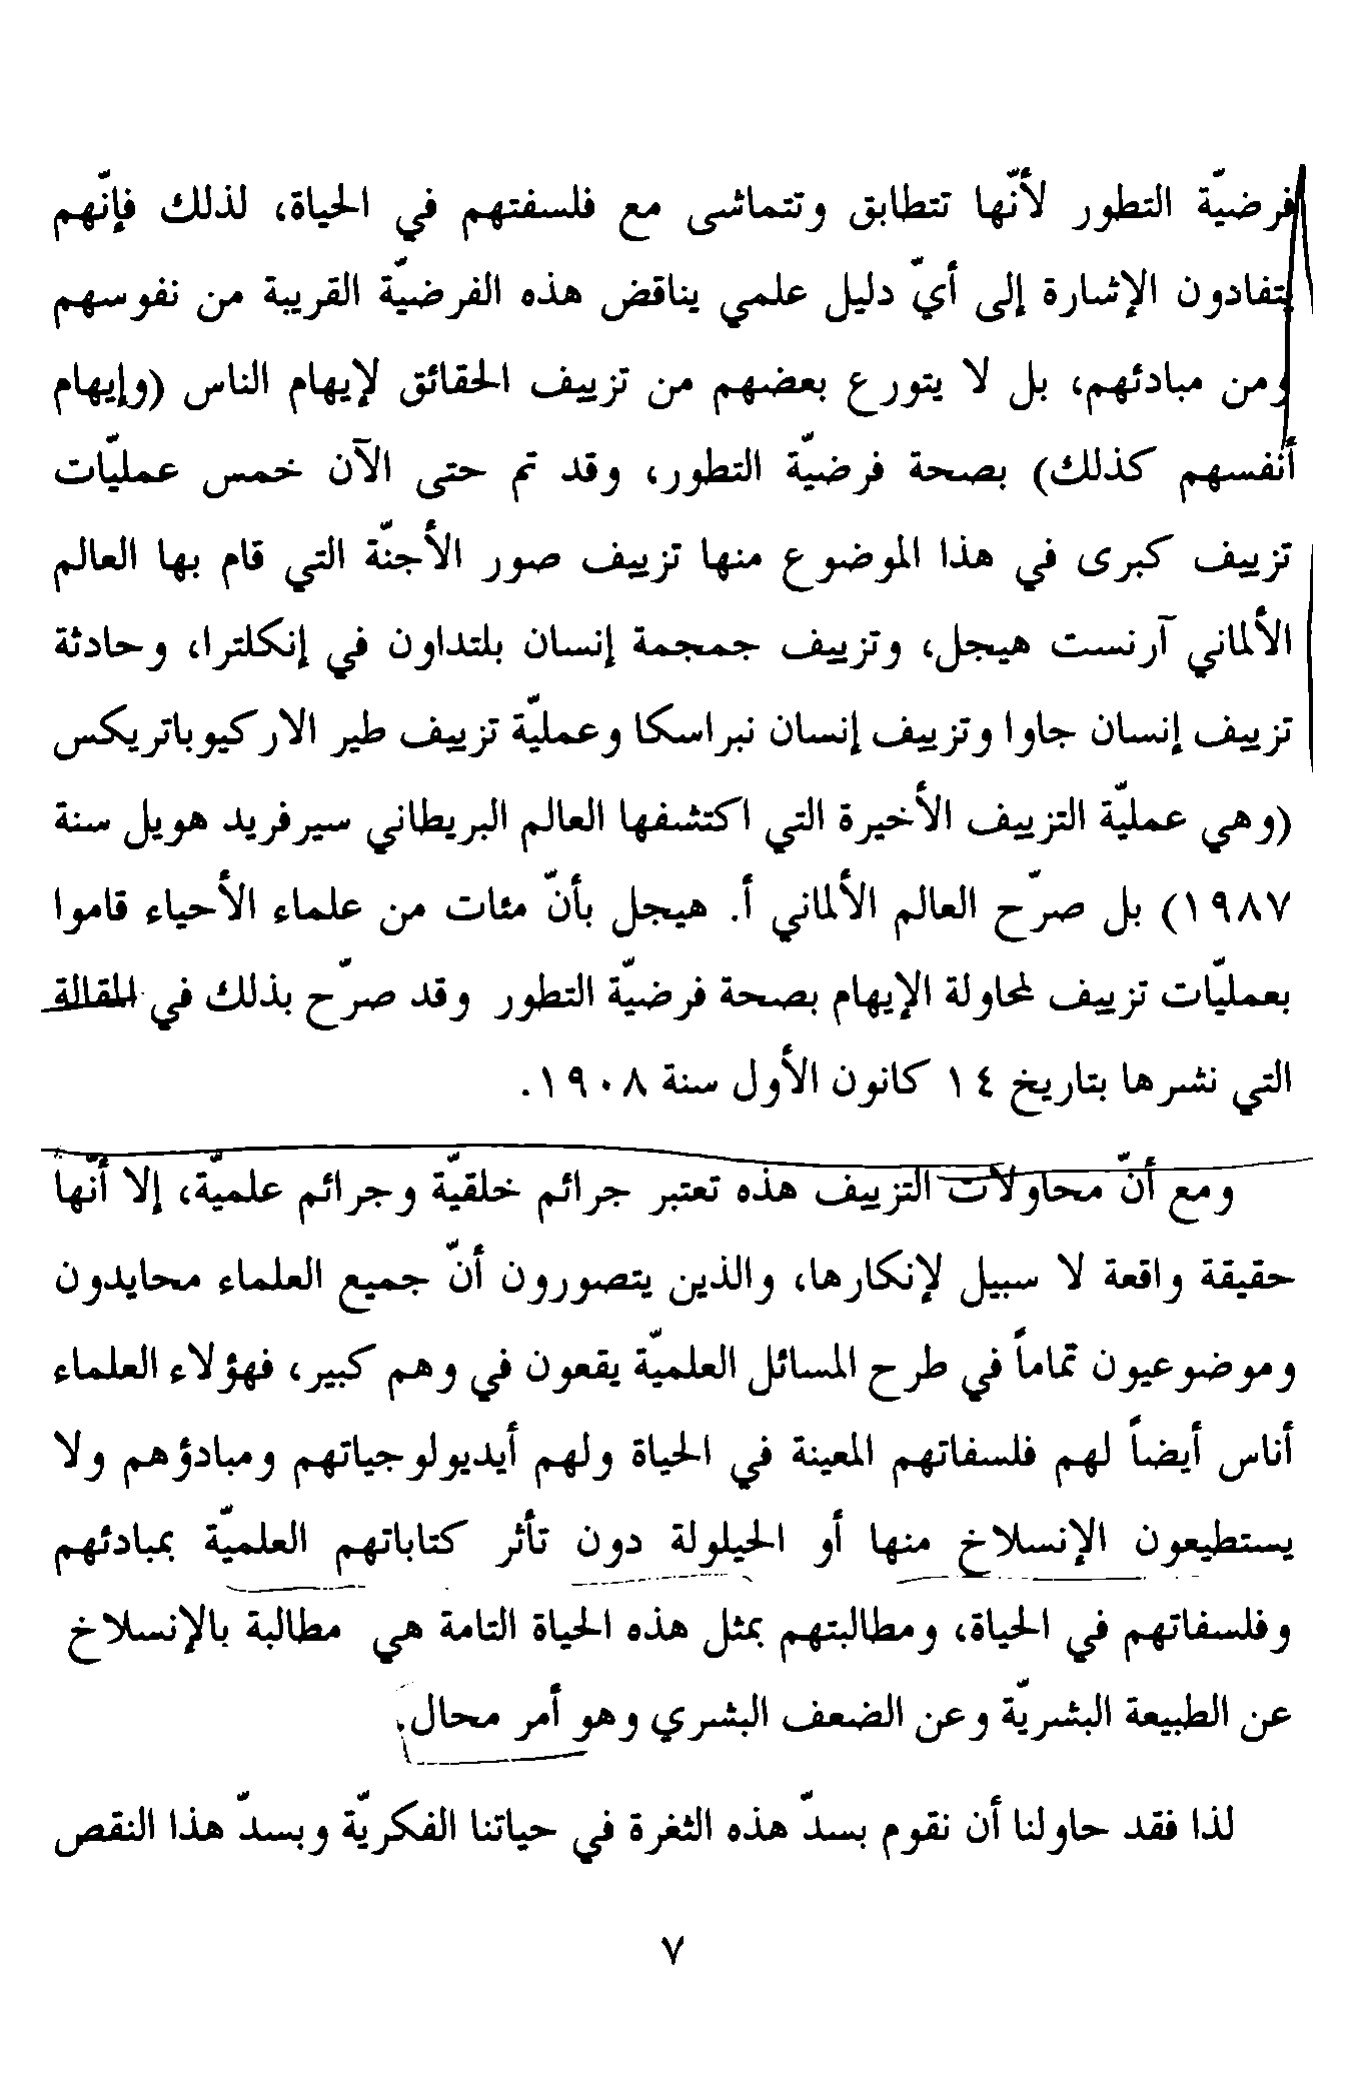 فرضيّة التطور لأنّها تتطابق وتتماشى مع فلسفتهم في الحياة، لذلك فإنّهم
يتفادون الإشارة إلى أيّ دليل علمي يناقض هذه الفرضيّة القريبة من نفوسهم
ومن مبادئهم، بل لا يتورع بعضهم من تزييف الحقائق لإيهام الناس (وإيهام
أنفسهم كذلك) بصحة فرضيّة التطور، وقد تم حتى الآن خمس عمليّات
تزييف كبرى في هذا الموضوع منها تزييف صور الأجنّة التي قام بها العالم
الألماني آرنست هيجل، وتزييف جمجمة إنسان بلتداون في إنكلترا، وحادثة
تزييف إنسان جاوا وتزييف إنسان نبراسكا وعمليّة تزييف طير الاركيوباتريكس
(وهي عمليّة التزييف الأخيرة التي اكتشفها العالم البريطاني سيرفريد هويل سنة
١٩٨٧) بل صرّح العالم الألماني أ. هيجل بأنّ مئات من علماء الأحياء قاموا
بعمليّات تزييف لمحاولة الإيهام بصحة فرضيّة التطور وقد صرّح بذلك في المقالة
التي نشرها بتاريخ ١٤ كانون الأول سنة ١٩٠٨.
ومع أنّ محاولات التزييف هذه تعتبر جرائم خلقيّة وجرائم علميّة، إلا أنّها
حقيقة واقعة لا سبيل لإنكارها، والذين يتصورون أنّ جميع العلماء محايدون
وموضوعيون تماماً في طرح المسائل العلميّة يقعون في وهم كبير، فهؤلاء العلماء
أناس أيضاً لهم فلسفاتهم المعينة في الحياة ولهم أيديولوجياتهم ومبادؤهم ولا
يستطيعون الإنسلاخ منها أو الحيلولة دون تأثر كتاباتهم العلميّة بمبادئهم
وفلسفاتهم في الحياة، ومطالبتهم بمثل هذه الحياة التامة هي مطالبة بالإنسلاخ
عن الطبيعة البشريّة وعن الضعف البشري وهو أمر محال.
لذا فقد حاولنا أن نقوم بسدّ هذه الثغرة في حياتنا الفكريّة وبسدّ هذا النقص
٧